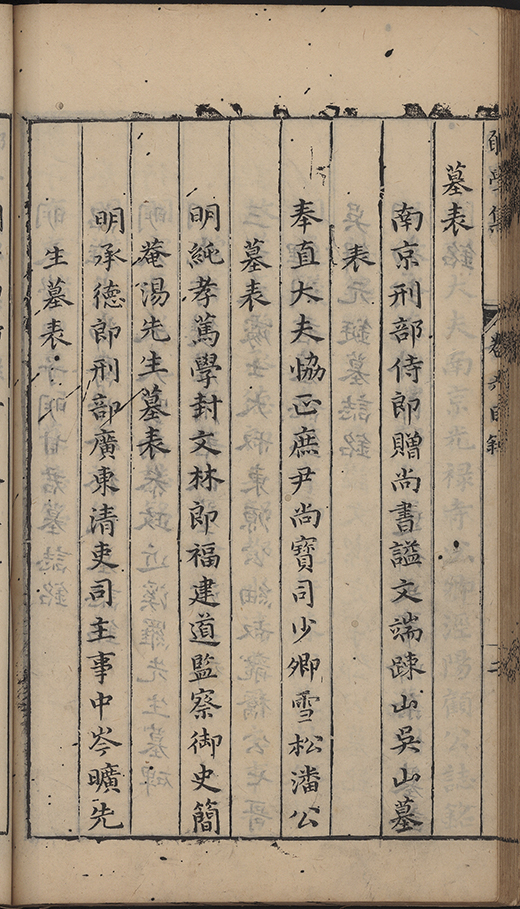 墓表
南京刑部侍郎贈尚書謚文端踈山吳山墓
表
奉直大夫協正庶尹尚寶司少卿雪松潘公
墓表
明純孝篤學封文林郎福建道監察御史簡
菴湯先生墓表
明承德郎刑部廣東清吏司主事中岑曠先
生墓表